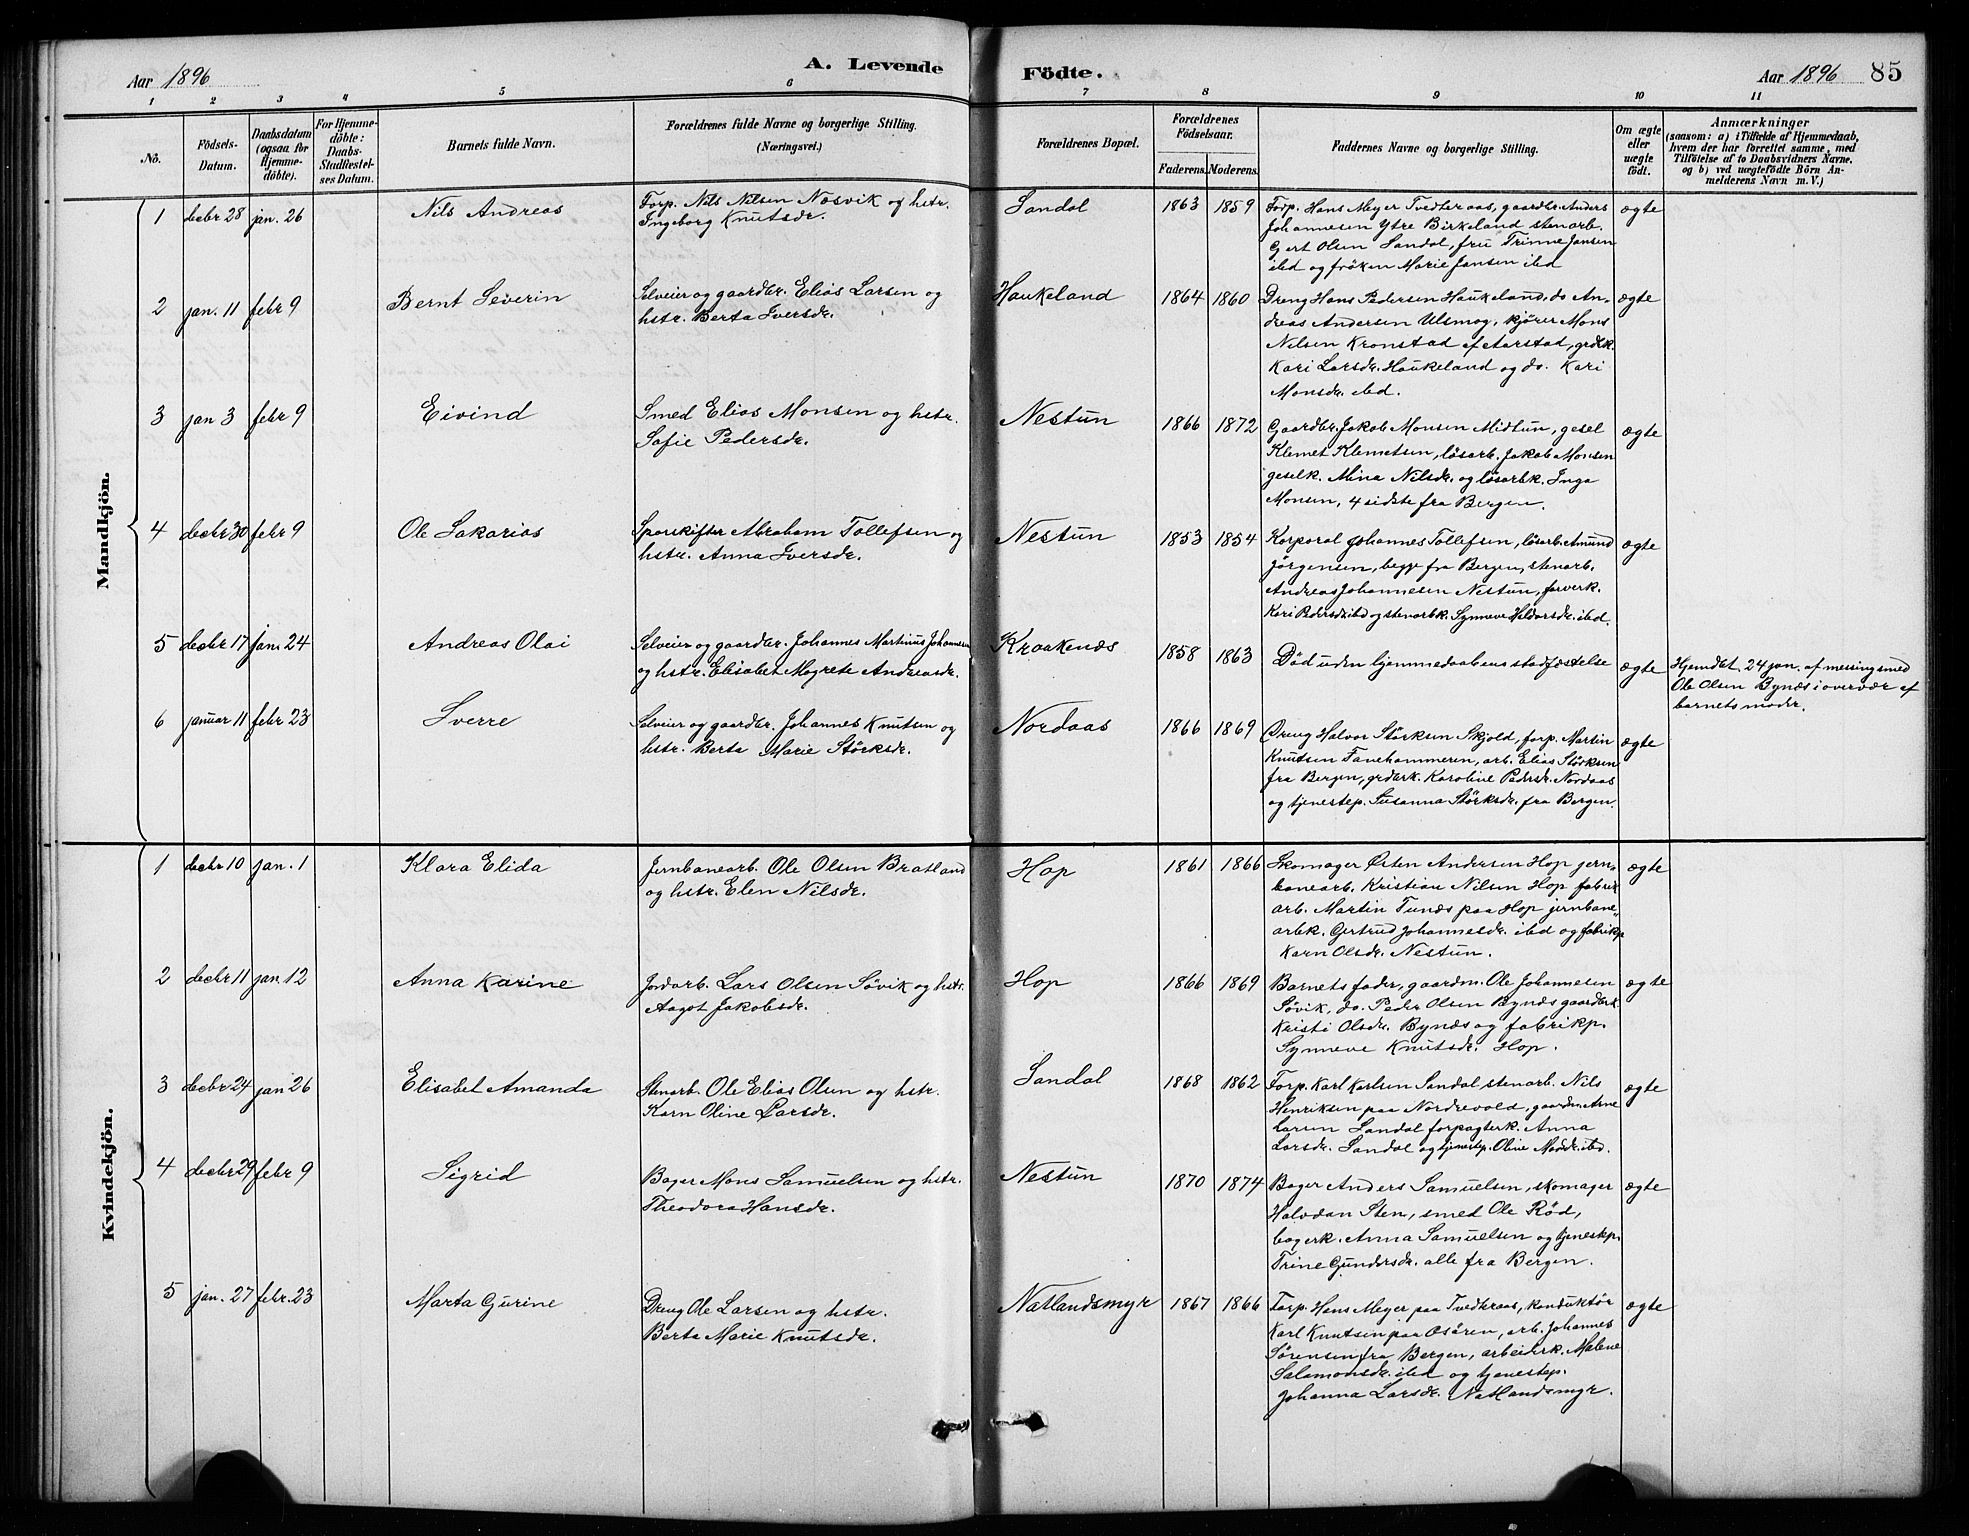 Aar 1896
A. Levende
Födte.
Aar 1896 85
1 2 3 4 5 6 7 8 9 10 11
No.
Födsels-
Datum.
Daabsdatum
(ogsaa for
Hjemme-
döbte).
For Hjemme-
döbte:
Daabs-
Stadfæstel-
ses Datum.
Barnets fulde Navn.
Forældrenes fulde Navne og borgerlige Stilling.
(Næringsvei.)
Forældrenes Bopæl.
Forældrenes
Födselsaar.
Faderens. Moderens.
Faddernes Navne og borgerlige Stilling.
Om ægte
eller
uægte
födt.
Anmærkninger
(saasom: a) i Tilfælde af Hjemmedaab,
hvem der har forrettet samme, med
Tilföielse af to Daabsvidners Navne,
og b) ved uægtefödte Börn An-
melderens Navn m. V.)
Mandkjön.
1 decbr 28 jan. 26 Nils Andreas
Forp. Nils Nilsen Næsvik og hstr.
Ingeborg Knutsdr.
Sandal 1863 1859
Forp. Hans Meyer Tvedteraas, gaardbr. Anders
Johannesen Ytre Birkeland stenarb.
Gert Olsen Sandal, fru Trinne Jansen
ibd og fröken Marie Jansen ibd
ægte
2 jan. 11 febr 9 Bernt Severin
Selveier og gaardbr. Elias Larsen og
hstr. Berta Iversdr.
Haukeland 1864 1860
Dreng Hans Pedersen Haukeland, do An-
dreas Andersen Ulsmog, kjörer Mons
Nilsen Kronstad af Aarstad, grdbk.
Kari Larsdr. Haukeland og do. Kari
Monsdr. ibd.
ægte
3 jan 3 febr 9 Eivind
Smed Elias Monsen og hstr.
Sofie Pedersdr.
Nestun 1866 1872
Gaardbr. Jakob Monsen Midtun, gesel
Klemet Klemetsen, lösarb. Jakob Monsen
geselk. Mina Nilsdr. og lösarbk. Inga
Monsen, 4 sidste fra Bergen.
ægte
4 decbr 30 febr 9 Ole Sakarias
Sporskifter Abraham Tollefsen og
hstr. Anna Iversdr.
Nestun 1853 1854
Korporal Johannes Tollefsen, lösarb. Amund
Jörgensen, begge fra Bergen, stenarb.
Andreas Johannesen Nestun, farverk.
Kari Pedersdr ibd og stenarbk. Synneve Haldorsdr. ibd.
ægte
5 decbr 17 jan. 24 Andreas Olai
Selveier og gaardbr. Johannes Martinus Johannesen
og hstr. Elisabet Magrete Andreasdr.
Kraakenæs 1858 1863
Död uden hjemmedaabens stadfæstelse
ægte
Hjemdbt. 24 jan. af messingsmed
Ole Olsen Bynæs i overvær af
barnets moder.
6 januar 11 febr 23 Sverre
Selveier og gaardbr. Johannes Knutsen og
hstr. Berta Marie Störksdr.
Nordaas 1866 1869
Dreng Halvor Störksen Skjold, forp. Martin
Knutsen Fanehammeren, arb. Elias Störksen
fra Bergen, grdbrk. Karoline Pedersdr. Nordaas
og tjenestep. Susanna Störksdr. fra Bergen.
ægte
Kvindekjön.
1 decbr 10 jan. 1 Klara Elida
Jernbanearb. Ole Olsen Bratland
og hstr. Elen Nilsdr.
Hop 1861 1866
Skomager Østen Andersen Hop jern-
banearb. Kristian Nilsen Hop fabrik
arb. Martin Tunæs paa Hop jernbane-
arbk. Gertrud Johannesdr. ibd og fabrikp
Karn Olsdr. Nestun.
ægte
2 decbr 11 jan. 12 Anna Karine
Jordarb. Lars Olsen Søvik og hstr.
Aagot Jakobsdr.
Hop 1866 1869
Barnets fader, gaardm. Ole Johannesen
Søvik, do. Peder Olsen Bynæs gaardbrk
Kristi Olsdr. Bynæs og fabrikp.
Synneve Knutsdr. Hop.
ægte
3 decbr 24 jan 26 Elisabet Amanda
Stenarb. Ole Elias Olsen og hstr.
Karn Oline Larsdr.
Sandal 1868 1862
Forp. Karl Karlsen Sandal stenarb. Nils
Henriksen paa Nordrevold, gaardm. Arne
Larsen Sandal forpagterk. Anna
Larsdr. Sandal og tjenestep. Oline ibd.
ægte
4 decbr 29 febr 9 Sigrid
Bager Mons Samuelsen og hstr.
Theodora Hansdr.
Nestun 1870 1874
Bager Anders Samuelsen, skomager
Halvdan Sten, smed Ole Rød,
bagerk. Anna Samuelsen og tjenestep.
Trine Gundersdr. alle fra Bergen.
ægte
5 jan. 27 febr. 23 Marta Gurine
Dreng Ole Larsen og hstr.
Berta Marie Knutsdr.
Natlandsmyr 1867 1866
Forp. Hans Meyer paa Tvedteraas, konduktör
Karl Knutsen paa Osören, arb. Johannes
Sörensen fra Bergen, arbeiderk. Malene
Salamonsdr. ibd og tjenestep.
Johanna Larsdr. Natlandsmyr.
ægte